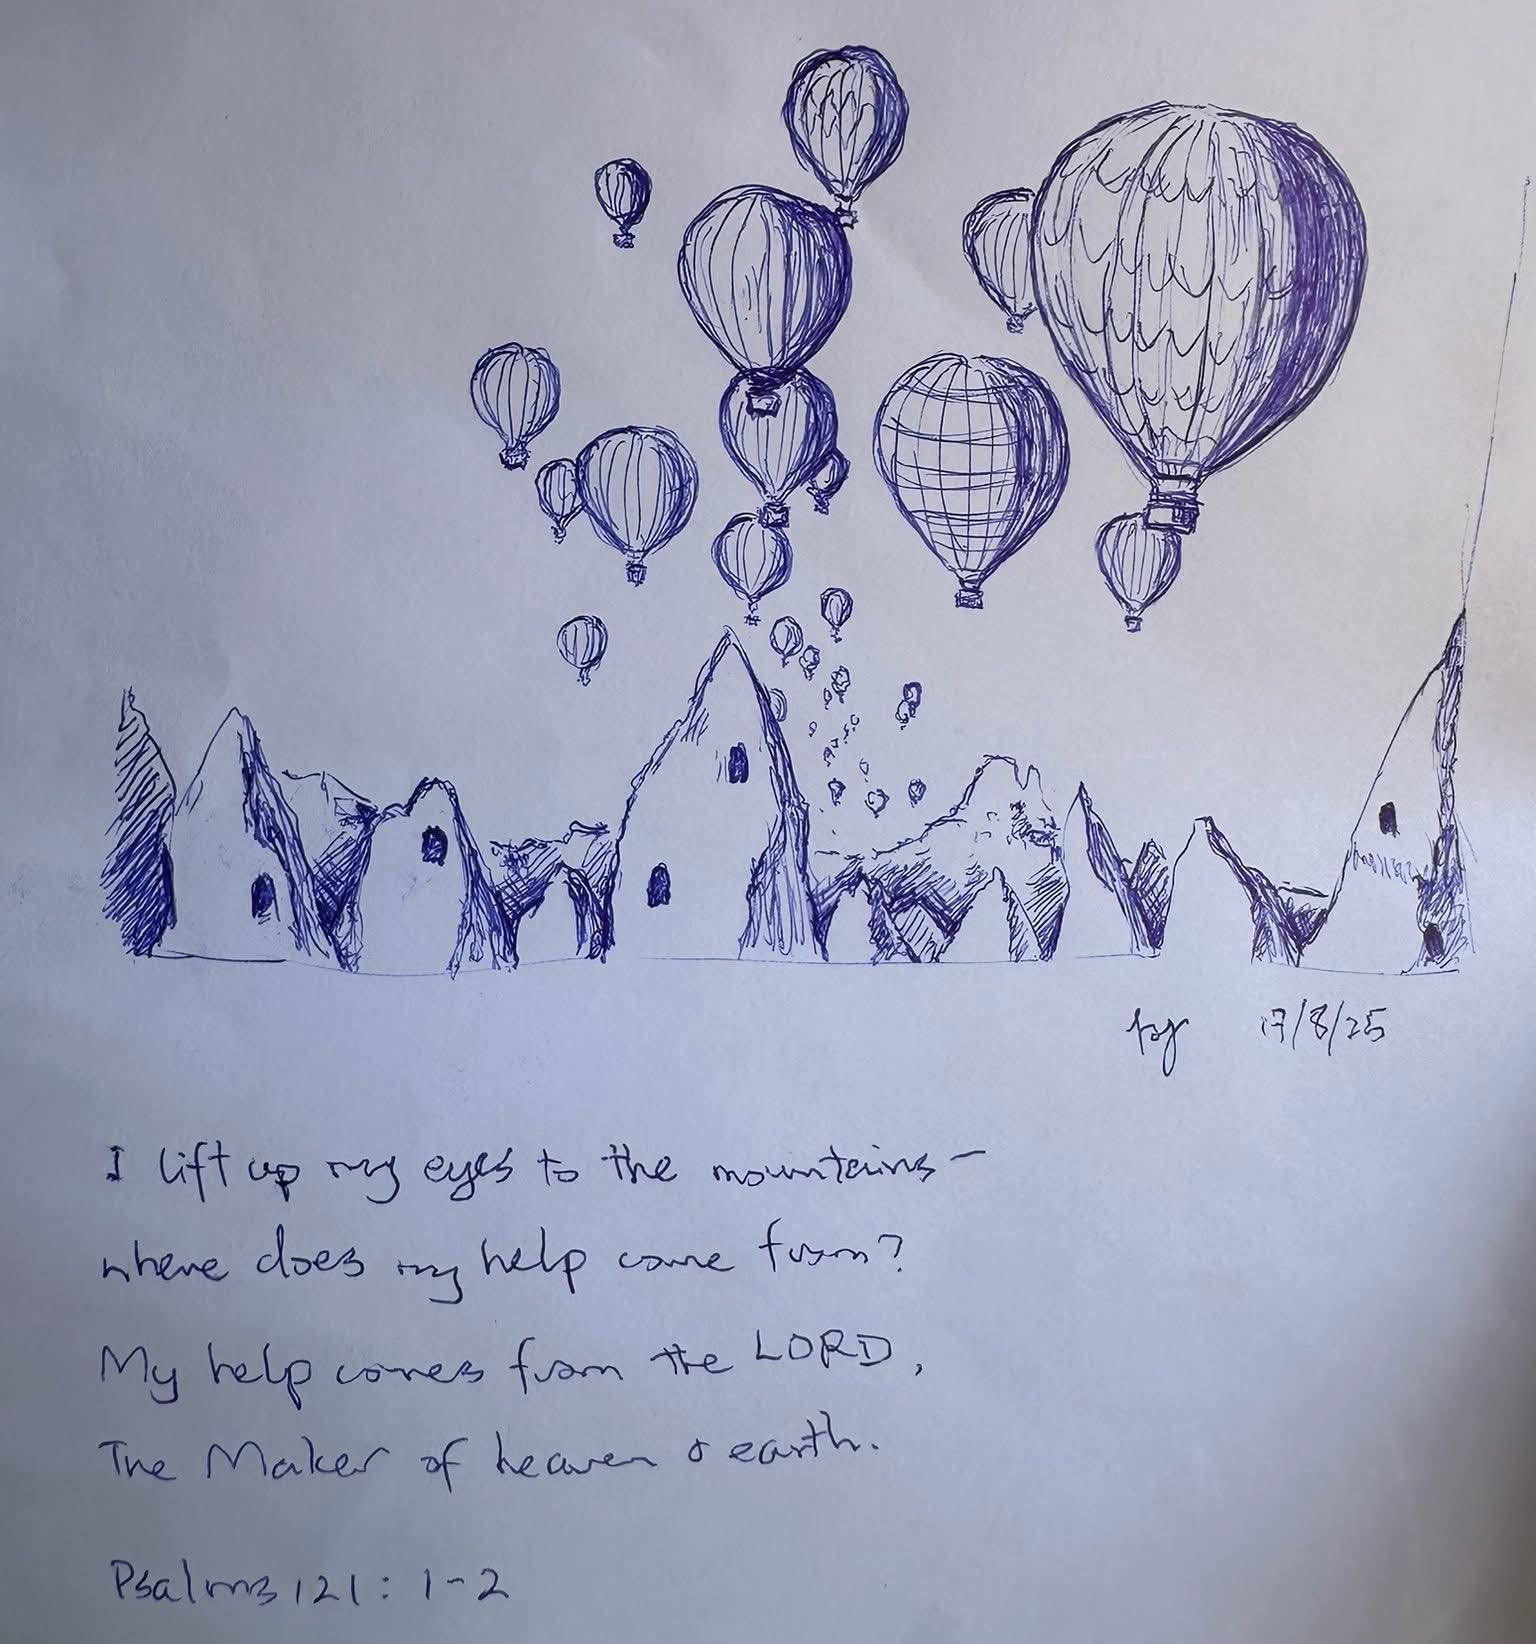 17/8/25
I lift up my eyes to the mountains -
where does my help come from?
My help comes from the LORD,
The Maker of heaven & earth.
Psalms 121 : 1-2